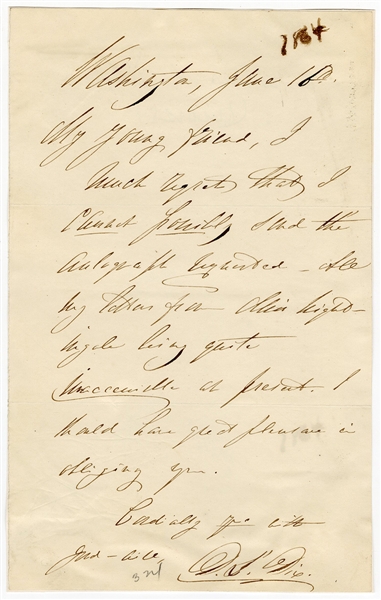 1864
Washington, June 16th.
My young friend, I
much regret that I
cannot possibly send the
autograph requested - all
my letters from Miss Night-
ingale being quite
inaccessible at present. I
should have great pleasure in
obliging you.
Cordially yrs with
good-will
D. L. Dix.